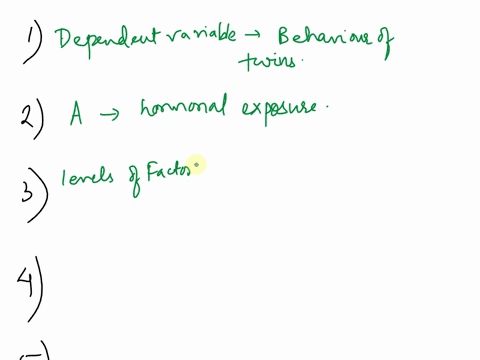 1) Dependent variable → Behaviour of
twins.
2) A → hormonal exposure.
3) levels of Factor
4)
5)